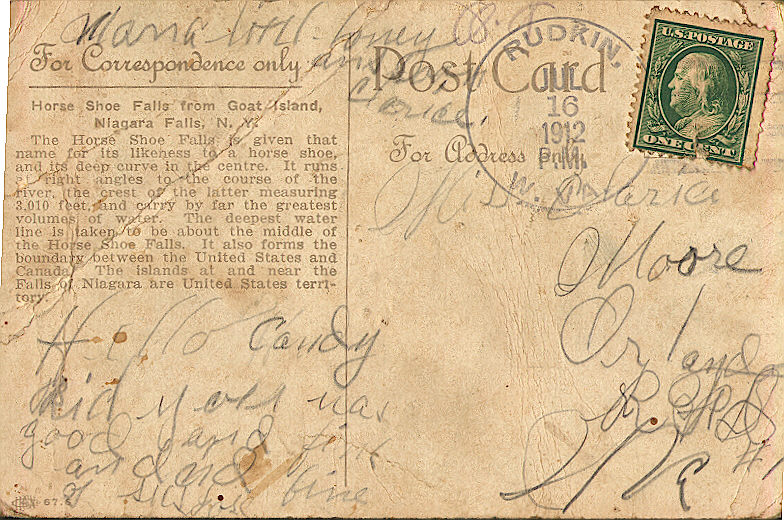 For Correspondence only
Post Card
RUDKIN.
JUL
16
1912
P.M.
W. VA.
U.S. POSTAGE
ONE CENT
Horse Shoe Falls from Goat Island,
Niagara Falls, N. Y.
The Horse Shoe Falls is given that
name for its likeness to a horse shoe,
and its deep curve in the centre. It runs
at right angles to the course of the
river, the crest of the latter measuring
3,010 feet, and carry by far the greatest
volumes of water. The deepest water
line is taken to be about the middle of
the Horse Shoe Falls. It also forms the
boundary between the United States and
Canada. The islands at and near the
Falls of Niagara are United States terri-
tory.
For Address only
Miss
Moore
Orland
R F D #
Hello Candy
did you
good and
and
of